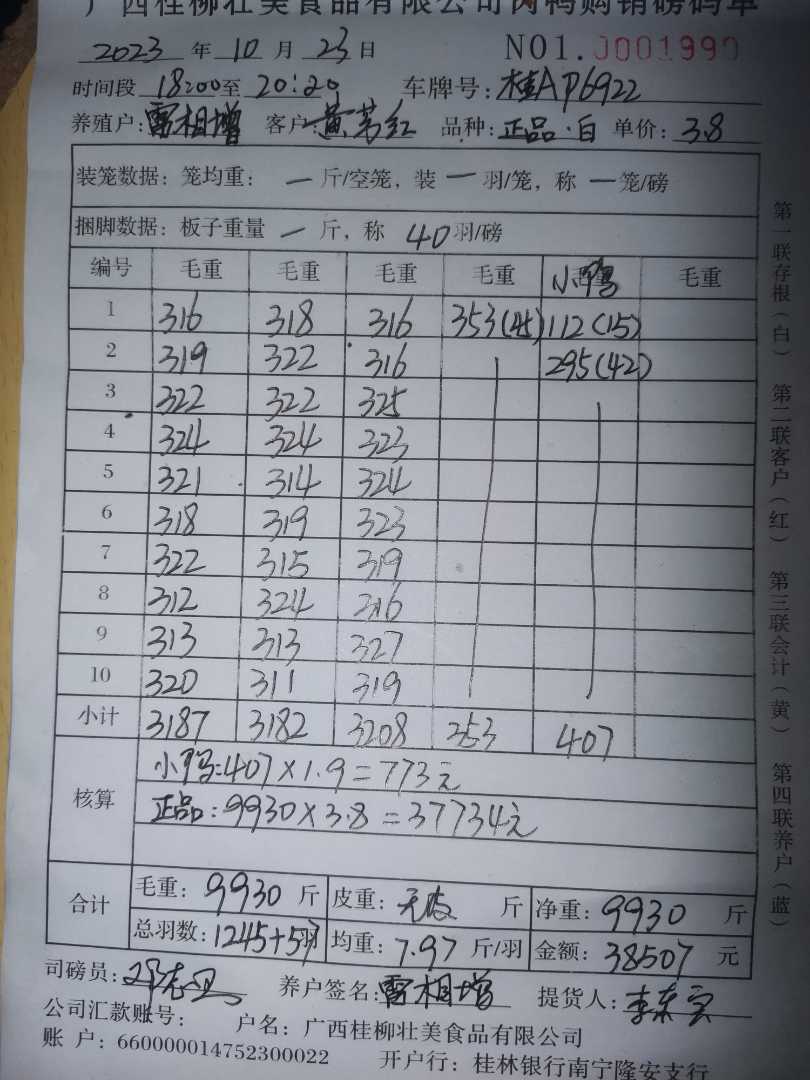 广西桂柳壮美食品有限公司肉鸭购销磅码单
2023 年 10 月 23 日 NO1.0001990
时间段 18:00至 20:20 车牌号:桂AP6922
养殖户:雷相增 客户:黄芳红 品种:正品·白 单价:3.8
装笼数据:笼均重: 一 斤/空笼,装 一 羽/笼,称 一 笼/磅
捆脚数据:板子重量 一 斤,称 40 羽/磅
编号 毛重 毛重 毛重 毛重 小鸭 毛重
1 316 318 316 353(45) 112(15)
2 319 322 316 295(42)
3 322 322 325
4 324 324 323
5 321 314 324
6 318 319 323
7 322 315 319
8 312 324 316
9 313 313 327
10 320 311 319
小计 3187 3182 3208 353 407
核算
小鸭:407×1.9=773元
正品:9930×3.8=37734元
合计
毛重:9930 斤 皮重:无皮 斤 净重:9930 斤
总羽数:1245+5羽 均重:7.97 斤/羽 金额:38507 元
司磅员: 养户签名:雷相增 提货人:
公司汇款账号: 户名:广西桂柳壮美食品有限公司
账 户:660000014752300022 开户行:桂林银行南宁隆安支行
第一联存根(白) 第二联客户(红) 第三联会计(黄) 第四联养户(蓝)